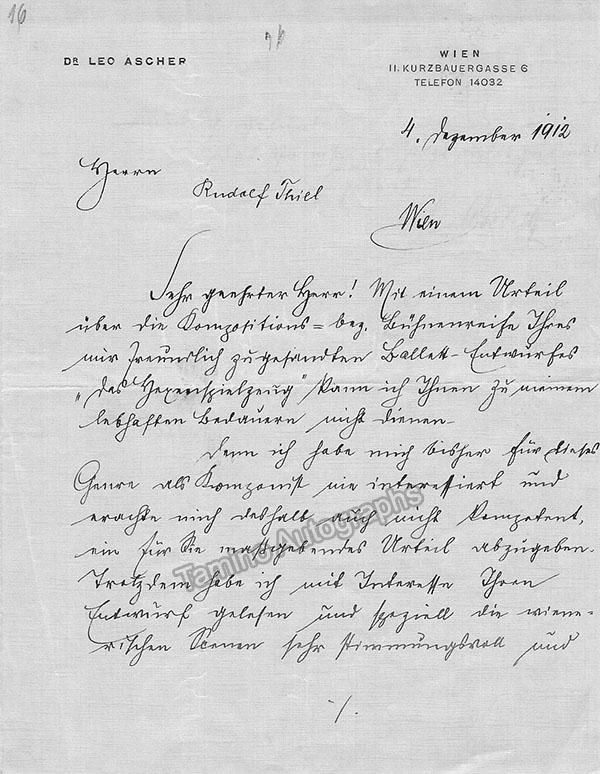 16
DR LEO ASCHER
WIEN
II. KURZBAUERGASSE 6
TELEFON 14032
4. Dezember 1912
Herrn
Rudolf Thiel
Wien
Sehr geehrter Herr! Mit einem Urteil
über die Kompositions= bez. Bühnenreife Ihres
mir freundlich zugesandten Ballett-Entwurfes
„Das Hexenspielzeug" kann ich Ihnen zu meinem
lebhaften Bedauern nicht dienen-
Denn ich habe mich bisher für dieses
Genre als Komponist nie interessiert und
erachte mich deshalb auch nicht kompetent,
ein für Sie maßgebendes Urteil abzugeben-
Trotzdem habe ich mit Interesse Ihren
Entwurf gelesen und speziell die wiene-
rischen Scenen sehr stimmungsvoll und
./.
Tamino Autographs